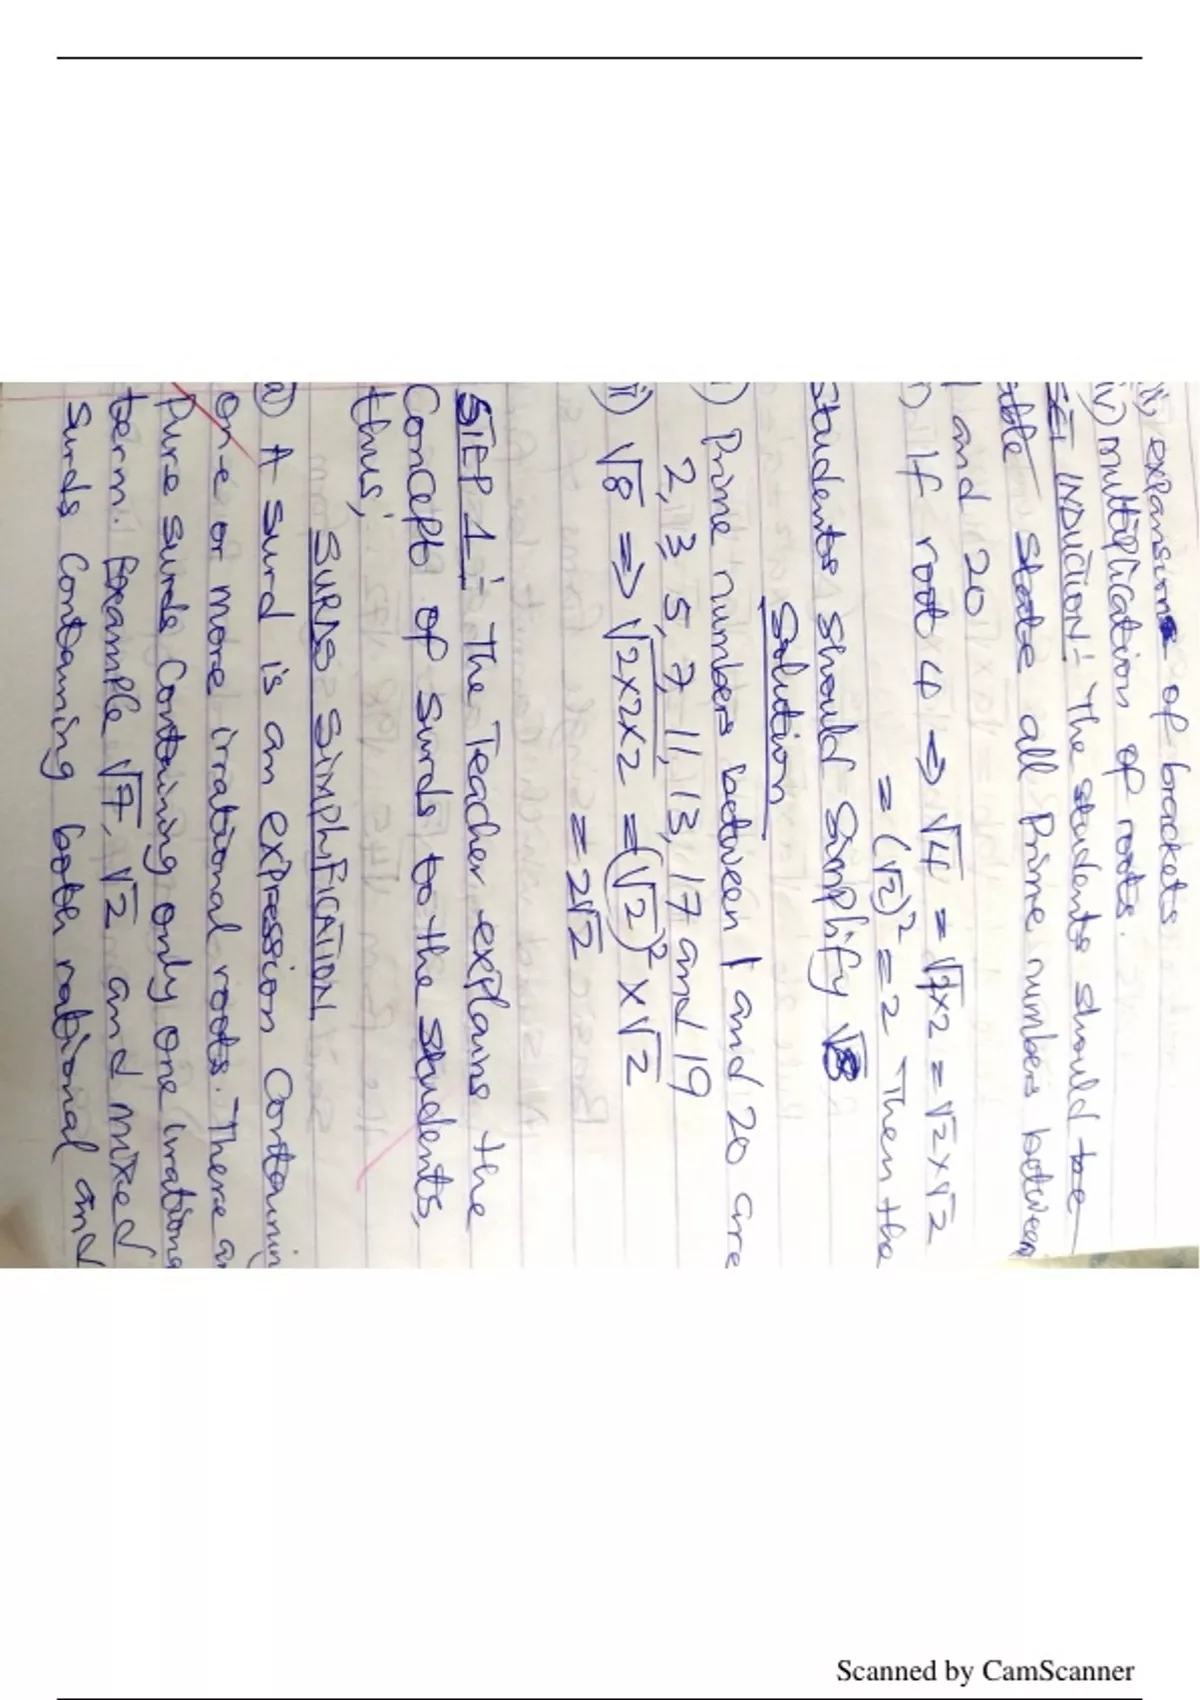 iii, expansions of brackets
iv) multiplication of roots.
SET INDUCTION:- The students should be
able state all Prime numbers between
1 and 20
) If root 4 => √4 = √2×2 = √2×√2
= (√2)² = 2 Then the
Students should Simplify √8
Solution
) Prime numbers between 1 and 20 are
2, 3 5, 7, 11, 13, 17 and 19
ii) √8 => √2×2×2 = (√2)² × √2
= 2√2
STEP 1:- The Teacher explains the
Concept of Surds to the students,
thus;
SURDS SIMPLIFICATION
(a) A Surd is an expression Containin
one or more irrational roots. There a
Pure Surds Containing only one irrationa
term. Example √7, √2 and mixed
Surds Containing both rational and
Scanned by CamScanner